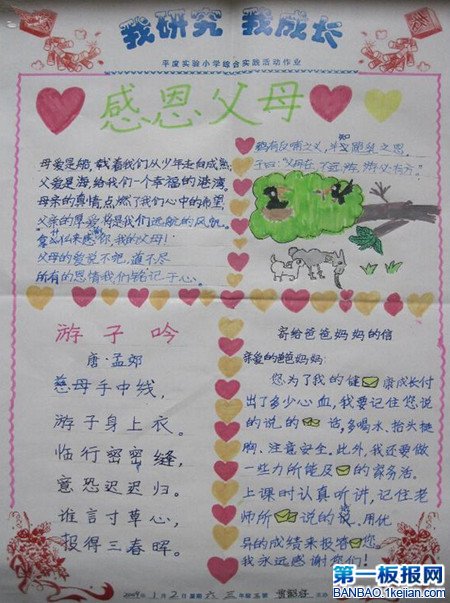 我研究 我成长
平度实验小学综合实践活动作业
感恩父母
母爱是船,载着我们从少年走向成熟;
父爱是海,给我们一个幸福的港湾。
母亲的真情,点燃了我们心中的希望,
父亲的厚爱,将是我们远航的风帆。
拿什么来感你,我的父母!
父母的爱说不完,道不尽
所有的恩情我们铭记于心。
鸦有反哺之义,羊知跪乳之恩。
子曰:“父母在,不远游,游必有方。”
游子吟
唐·孟郊
慈母手中线,
游子身上衣。
临行密密缝,
意恐迟迟归。
谁言寸草心,
报得三春晖。
寄给爸爸妈妈的信
亲爱的爸爸妈妈:
您为了我的健康成长付
出了多少心血,我要记住您说
的说的话,多喝水、抬头挺
胸、注意安全。此外,我还要做
一些力所能及的家务活。
上课时认真听讲,记住老
师所说的 用优
异的成绩来报答您!
我永远感谢您们!
2009年 1月 2日 星期六 三年级
第一板报网
BANBAO.1kejian.com